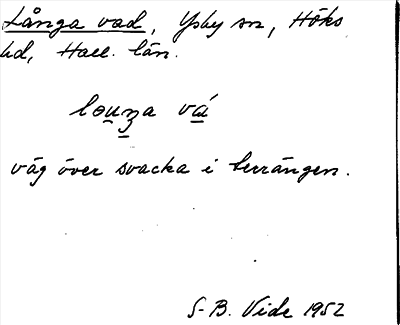 Långa vad, Ysby sn, Höks
hd, Hall. län.
vá
väg över svacka i terrängen.
S-B. Vide 1952